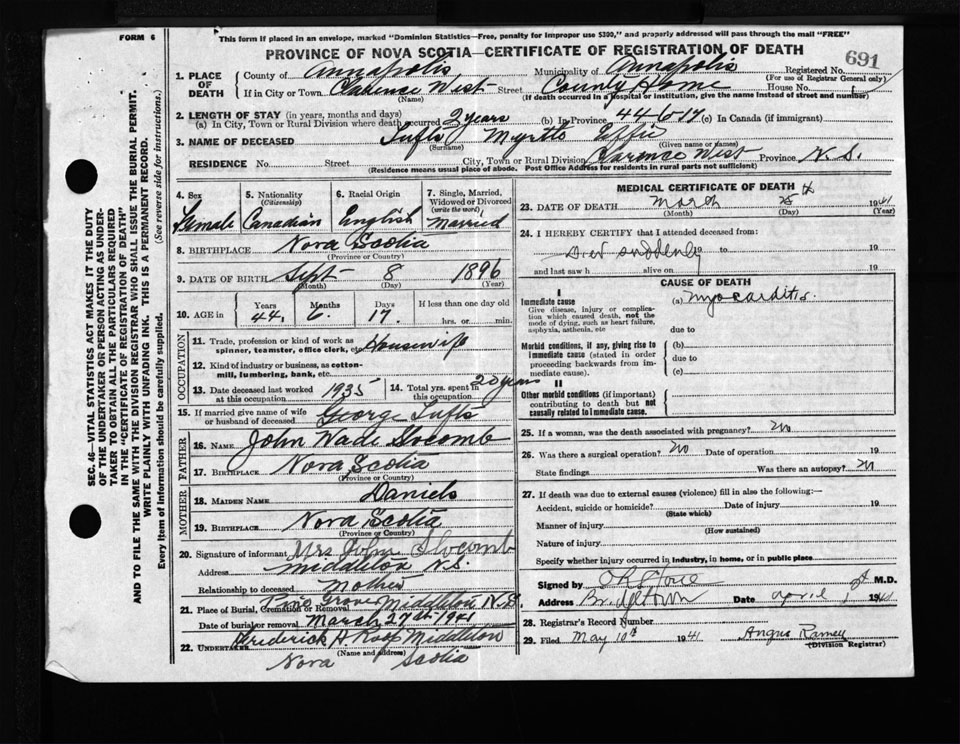 FORM 6
This form if placed in an envelope, marked "Dominion Statistics—Free, penalty for improper use $300," and properly addressed will pass through the mail "FREE"
PROVINCE OF NOVA SCOTIA—CERTIFICATE OF REGISTRATION OF DEATH
691
1. PLACE OF DEATH County of Annapolis Municipality of Annapolis Registered No.
(For use of Registrar General only)
If in City or Town Clarence West Street County Home House No.
(Name) (If death occurred in a hospital or institution, give the name instead of street and number)
2. LENGTH OF STAY (in years, months and days)
(a) In City, Town or Rural Division where death occurred 2 years (b) In Province 44 6 17 (c) In Canada (if immigrant)
3. NAME OF DECEASED Tufts Myrtle Effie
(Surname) (Given name or names)
RESIDENCE No. Street City, Town or Rural Division Clarence West Province N.S.
Residence means usual place of abode. Post Office Address for residents in rural parts not sufficient)
4. Sex Female
5. Nationality (Citizenship) Canadian
6. Racial Origin English
7. Single, Married, Widowed or Divorced (write the word) Married
8. BIRTHPLACE Nova Scotia
(Province or Country)
9. DATE OF BIRTH Sept 8 1896
(Month) (Day) (Year)
10. AGE in Years 44 Months 6 Days 17 If less than one day old hrs. or min.
OCCUPATION
11. Trade, profession or kind of work as spinner, teamster, office clerk, etc. Housewife
12. Kind of industry or business, as cotton-mill, lumbering, bank, etc.
13. Date deceased last worked at this occupation 1935
14. Total yrs. spent in this occupation 20 years
15. If married give name of wife or husband of deceased George Tufts
FATHER
16. Name John Wade Slocomb
17. Birthplace Nova Scotia
(Province or Country)
MOTHER
18. Maiden Name Daniels
19. Birthplace Nova Scotia
(Province or Country)
20. Signature of informant Mrs John Slocomb
Address Middleton N.S.
Relationship to deceased Mother
21. Place of Burial, Cremation or Removal Pine Grove Middleton N.S
Date of burial or removal March 27th 1941
22. Undertaker Frederick H Roop Middleton
(Name and address)
Nova Scotia
MEDICAL CERTIFICATE OF DEATH
23. DATE OF DEATH March 25 th 1941
(Month) (Day) (Year)
24. I HEREBY CERTIFY that I attended deceased from:
Died suddenly 19 to 19
and last saw h alive on 19
CAUSE OF DEATH
I
Immediate cause (a) Myocarditis.
Give disease, injury or complication which caused death, not the mode of dying, such as heart failure, asphyxia, asthenia, etc
due to
Morbid conditions, if any, giving rise to immediate cause (stated in order proceeding backwards from immediate).
(b)
due to
(c)
II
Other morbid conditions (if important) contributing to death but not causally related to immediate cause.
25. If a woman, was the death associated with pregnancy? No
26. Was there a surgical operation? No Date of operation 19
State findings Was there an autopsy? N
27. If death was due to external causes (violence) fill in also the following:—
Accident, suicide or homicide? Date of injury 19
(State which)
Manner of injury
(How sustained)
Nature of injury
Specify whether injury occurred in industry, in home, or in public place
Signed by M.D.
Address Bridgetown Date April 1st 1941
28. Registrar's Record Number
29. Filed May 10th 1941 Angus Ramey
(Division Registrar)
SEC. 46—VITAL STATISTICS ACT MAKES IT THE DUTY OF THE UNDERTAKER OR PERSON ACTING AS UNDERTAKER TO OBTAIN ALL THE PARTICULARS REQUIRED IN THE "CERTIFICATE OF REGISTRATION OF DEATH" AND TO FILE THE SAME WITH THE DIVISION REGISTRAR WHO SHALL ISSUE THE BURIAL PERMIT.
WRITE PLAINLY WITH UNFADING INK. THIS IS A PERMANENT RECORD.
Every item of Information should be carefully supplied. (See reverse side for instructions.)